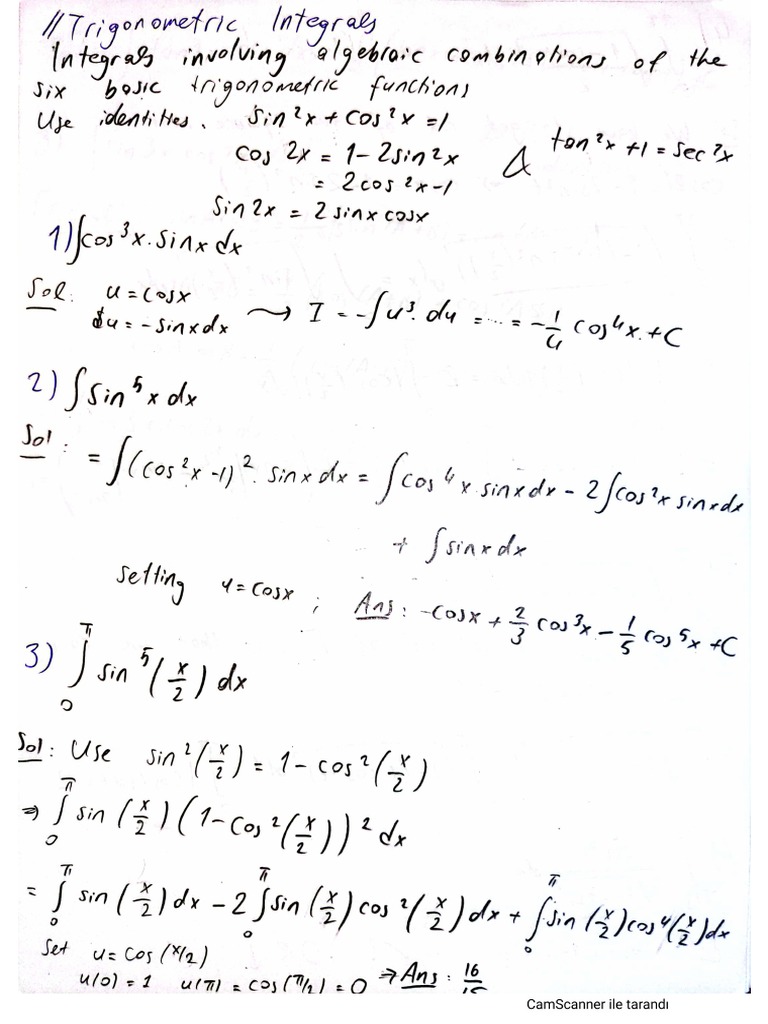 // Trigonometric Integrals
Integrals involving algebraic combinations of the
six basic trigonometric functions
Use identities. sin²x + cos²x = 1
cos 2x = 1 - 2sin²x & tan²x + 1 = sec²x
= 2cos²x - 1
Sin 2x = 2 sinx cosx
1) ∫cos³x. sinx dx
Sol: u = cosx
du = -sinx dx ⟶ I = -∫u³. du = ... = -1/4 cos⁴x. + C
2) ∫sin⁵x dx
Sol: = ∫(cos²x - 1)². sinx dx = ∫cos⁴x. sinx dx - 2∫cos²x sinx dx
+ ∫sinx dx
Setting u = cosx ; Ans: -cosx + 2/3 cos³x - 1/5 cos⁵x + C
3) ∫₀^π sin⁵(x/2) dx
Sol: Use sin²(x/2) = 1 - cos²(x/2)
⇒ ∫₀^π sin(x/2) (1 - cos²(x/2))² dx
= ∫₀^π sin(x/2) dx - 2∫₀^π sin(x/2) cos²(x/2) dx + ∫₀^π sin(x/2) cos⁴(x/2) dx
Set u = cos(x/2)
u(0) = 1 u(π) = cos(π/2) = 0 ⇒ Ans: 16/15
CamScanner ile tarandı